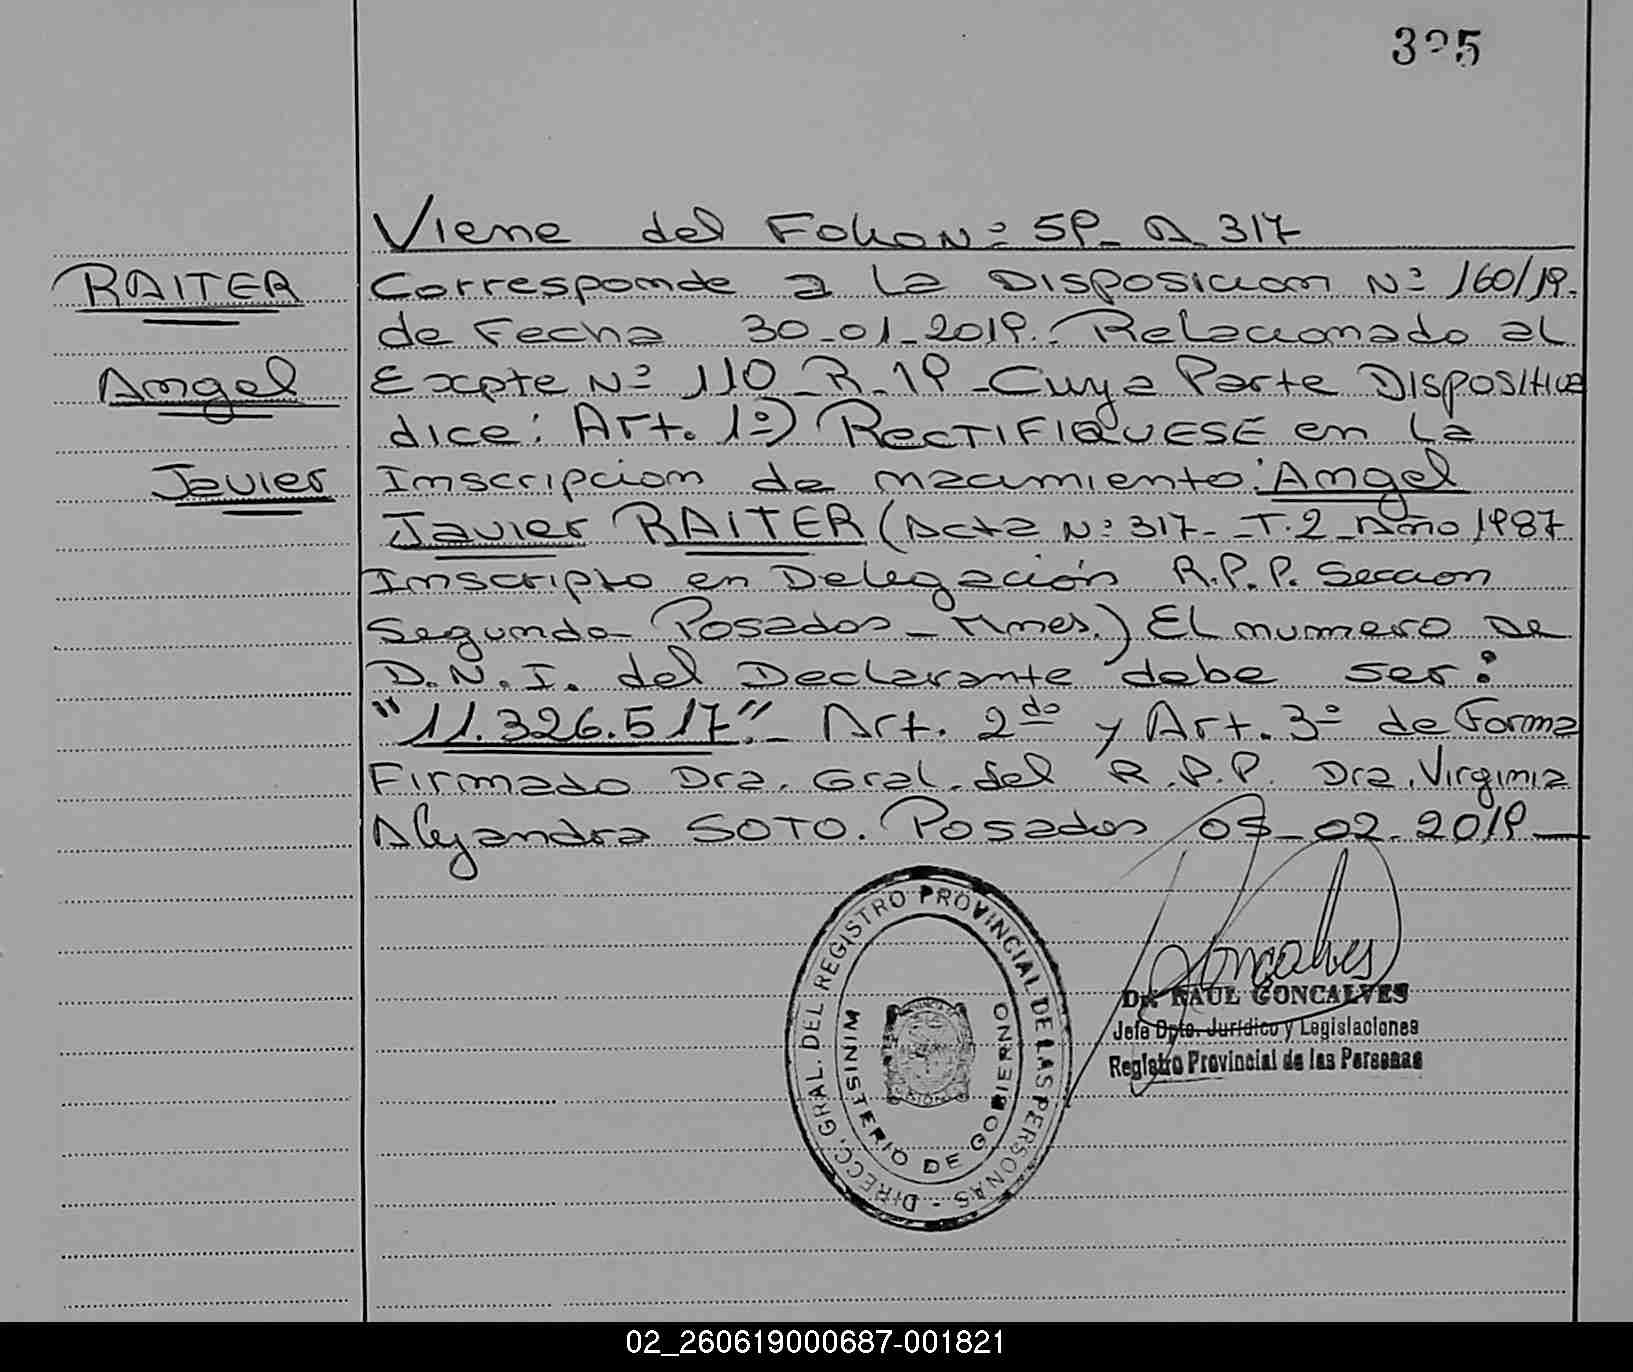 Viene del Folio Nº 59 - A. 317
RAITER
Angel
Javier
Corresponde a la Disposicion Nº 160/19.
de Fecha 30-01-2019. Relacionado al
Expte Nº 110-R-19 - Cuya Parte Dispositiva
dice: Art. 1º) RECTIFIQUESE en la
Inscripcion de nacimiento: Angel
Javier RAITER (Acta Nº 317 - T. 2 - Año 1987
Inscripto en Delegación R.P.P. Seccion
Segunda - Posadas - Mnes.) El numero de
D.N.I. del Declarante debe ser:
"11.326.517" - Art. 2do y Art. 3º de Forma
Firmado Dra. Gral. del R.P.P. Dra. Virginia
Alejandra SOTO. Posadas -02-2019
DIRECC. GRAL. DEL REGISTRO PROVINCIAL DE LAS PERSONAS -
MINISTERIO DE GOBIERNO
Dr. RAUL GONCALVES
Jefe Dpto. Jurídico y Legislaciones
Registro Provincial de las Personas
02_260619000687-001821